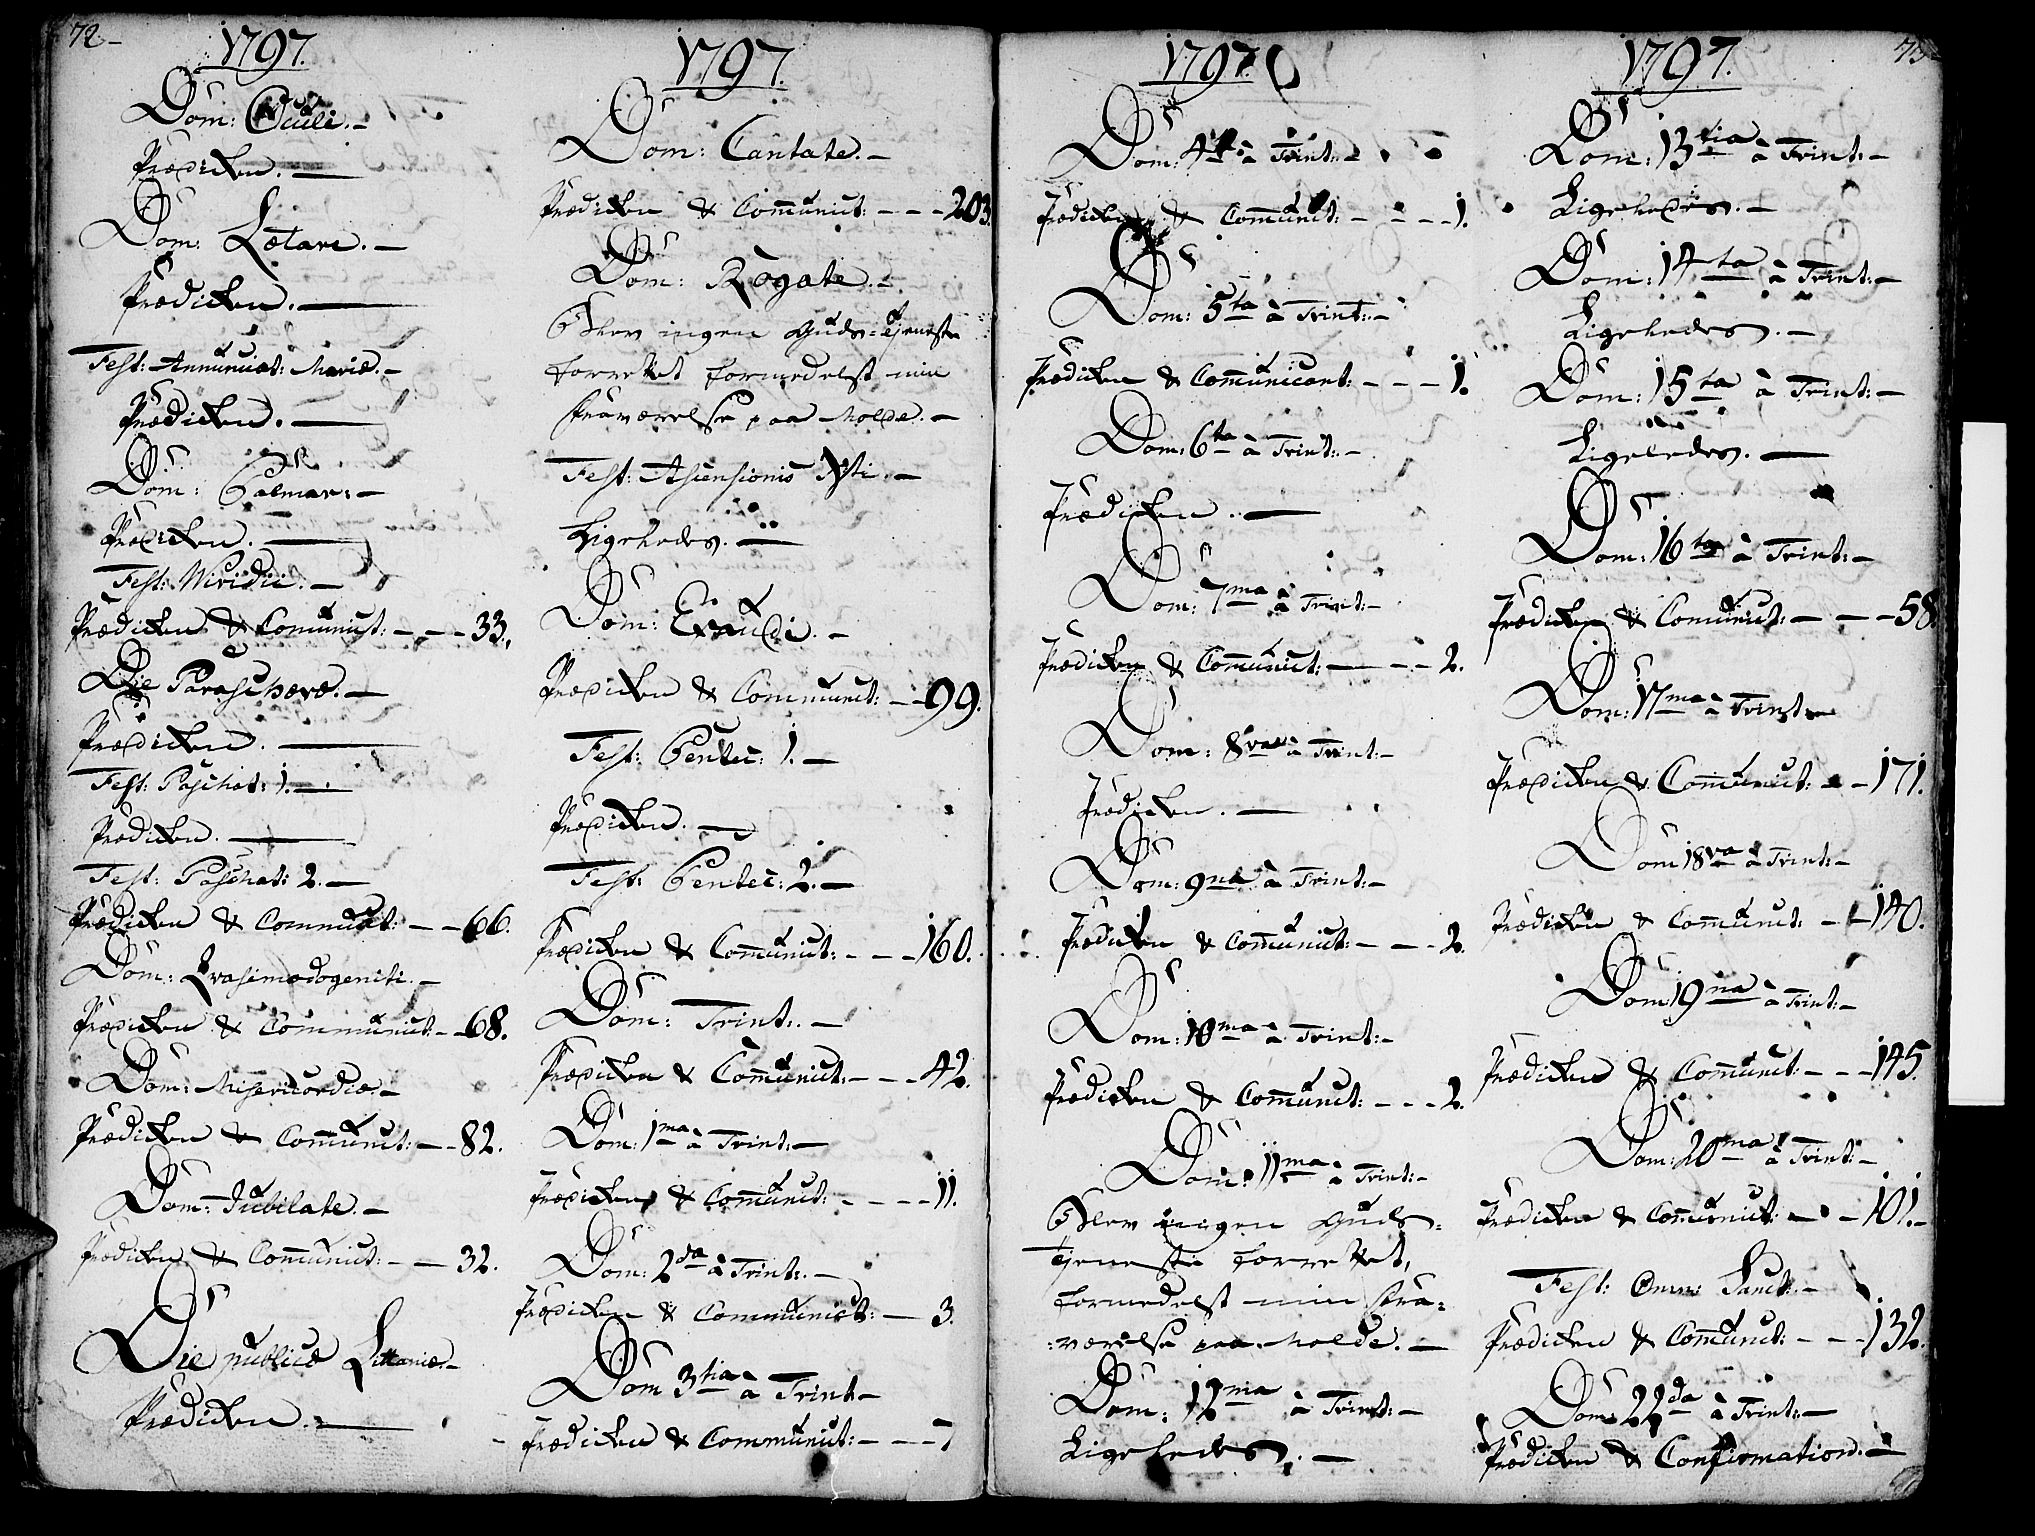 72.
1797.
Dom: Oculi.
Prædiken.
Dom: Lætare.
Prædiken.
Fest: Annunciat: Mariæ.
Prædiken.
Dom: Palmar:
Prædiken.
Fest: Viridii.
Prædiken & Communict: 33.
Die Parasceves.
Prædiken.
Fest: Paschat: 1.
Prædiken.
Fest: Paschat: 2.
Prædiken & Communict: 66.
Dom: Qvasimodogeniti.
Prædiken & Communict: 68.
Dom: Misericordiæ.
Prædiken & Communict: 82.
Dom: Jubilate.
Prædiken & Communict: 32.
Die publicæ Littaniæ.
Prædiken.
1797.
Dom: Cantate.
Prædiken & Communict: 203.
Dom: Rogate.
Blev ingen Guds-Tjeneste
forrettet formedelst min
fraværelse paa Molde.
Fest: Ascensionis Xsti.
Ligeledes.
Dom: Exaudi.
Prædiken & Communict: 99.
Fest: Pentec: 1.
Prædiken.
Fest: Pentec: 2.
Prædiken & Communict: 160.
Dom: Trint:
Prædiken & Communict: 42.
Dom: 1ma à Trint:
Prædiken & Communict: 11.
Dom: 2da à Trint:
Prædiken & Communict: 3.
Dom 3tia à Trint
Prædiken & Communict: 7
1797.
Dom: 4ta à Trint:
Prædiken & Communict: 1.
Dom: 5ta à Trint:
Prædiken & Communicant: 1.
Dom: 6ta à Trint:
Prædiken.
Dom: 7ma à Trint:
Prædiken & Communict: 2.
Dom: 8va à Trint:
Prædiken.
Dom: 9na à Trint:
Prædiken & Communict: 2.
Dom: 10ma à Trint:
Prædiken & Communict: 2.
Dom: 11ma à Trint:
Blev ingen Guds=
Tjeneste forrettet,
formedelst min fra=
:værelse paa Molde.
Dom: 12ma à Trint:
Ligeledes.
73
1797.
Dom: 13tia à Trint:
Ligeledes.
Dom: 14ta à Trint:
Ligeledes.
Dom: 15ta à Trint:
Ligeledes.
Dom: 16ta à Trint:
Prædiken & Communict: 58.
Dom: 17ma à Trint:
Prædiken & Communict: 171.
Dom 18va à Trint:
Prædiken & Communict: 140.
Dom 19na à Trint:
Prædiken & Communict: 145.
Dom: 20ma à Trint:
Prædiken & Communict: 101.
Fest: Omn: Sanct:
Prædiken & Communict: 132.
Dom: 22da à Trint:
Prædiken & Confirmation.